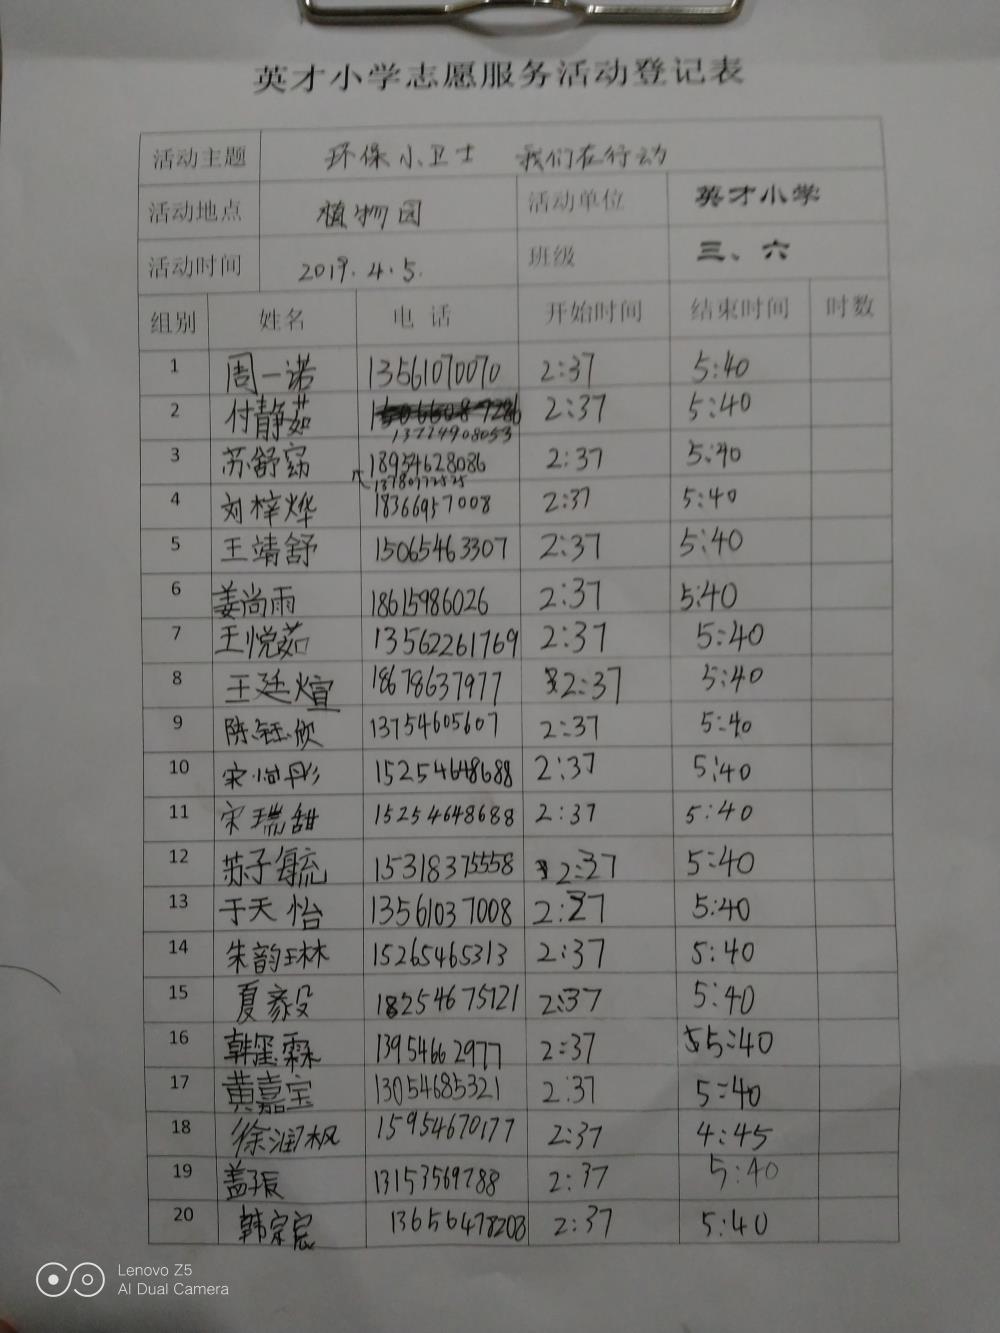 英才小学志愿服务活动登记表
活动主题 环保小卫士 我们在行动
活动地点 植物园 活动单位 英才小学
活动时间 2019.4.5. 班级 三、六
组别 姓名 电话 开始时间 结束时间 时数
1 周一诺 13561070070 2:37 5:40
2 付静茹 13774908053 2:37 5:40
3 苏舒 18954628086 2:37 5:40
13780772525
4 刘梓烨 18366957008 2:37 5:40
5 王靖舒 15065463307 2:37 5:40
6 姜尚雨 18615986026 2:37 5:40
7 王悦茹 13562261769 2:37 5:40
8 王廷煊 18678637977 2:37 5:40
9 陈钰欣 13754605607 2:37 5:40
10 宋尚彤 15254648688 2:37 5:40
11 宋瑞甜 15254648688 2:37 5:40
12 苏子毓 15318375558 2:37 5:40
13 于天怡 13561037008 2:27 5:40
14 朱韵琳 15265465313 2:37 5:40
15 夏豪毅 18254675121 2:37 5:40
16 韩玺霖 13954662977 2:37 5:40
17 黄嘉宝 13054685321 2:37 5:40
18 徐润枫 15954670177 2:37 4:45
19 盖子辰 13153569788 2:37 5:40
20 韩宗宸 13656478203 2:37 5:40
Lenovo Z5
AI Dual Camera